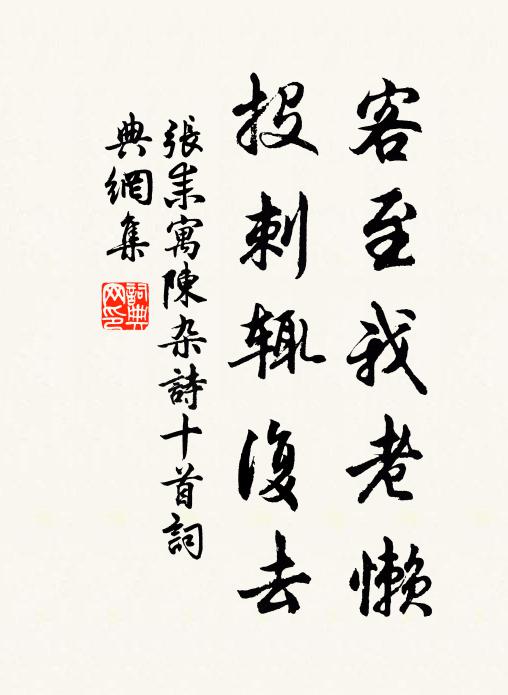 客至我老懒
投刺辄復去
張耒寓陳杂詩十首詞
典網集
詞典网印